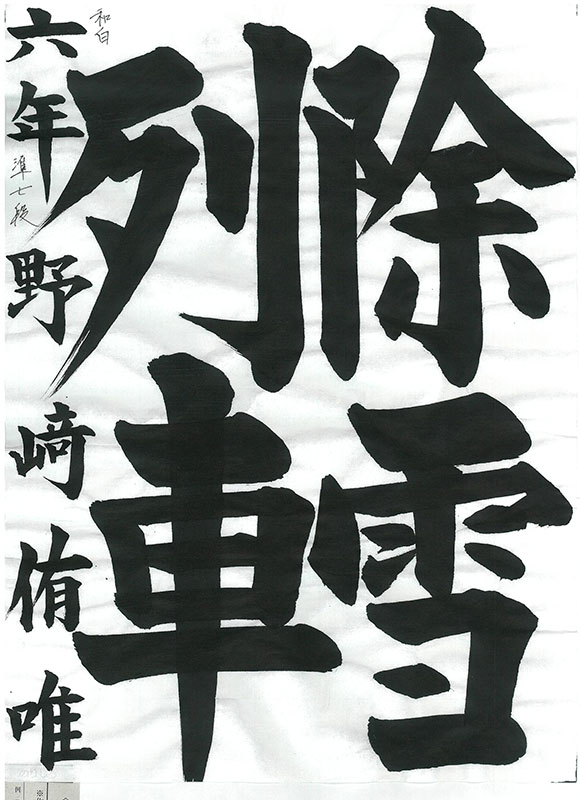 除雪
列車
六年 準七段 野﨑侑唯
和白
例
※